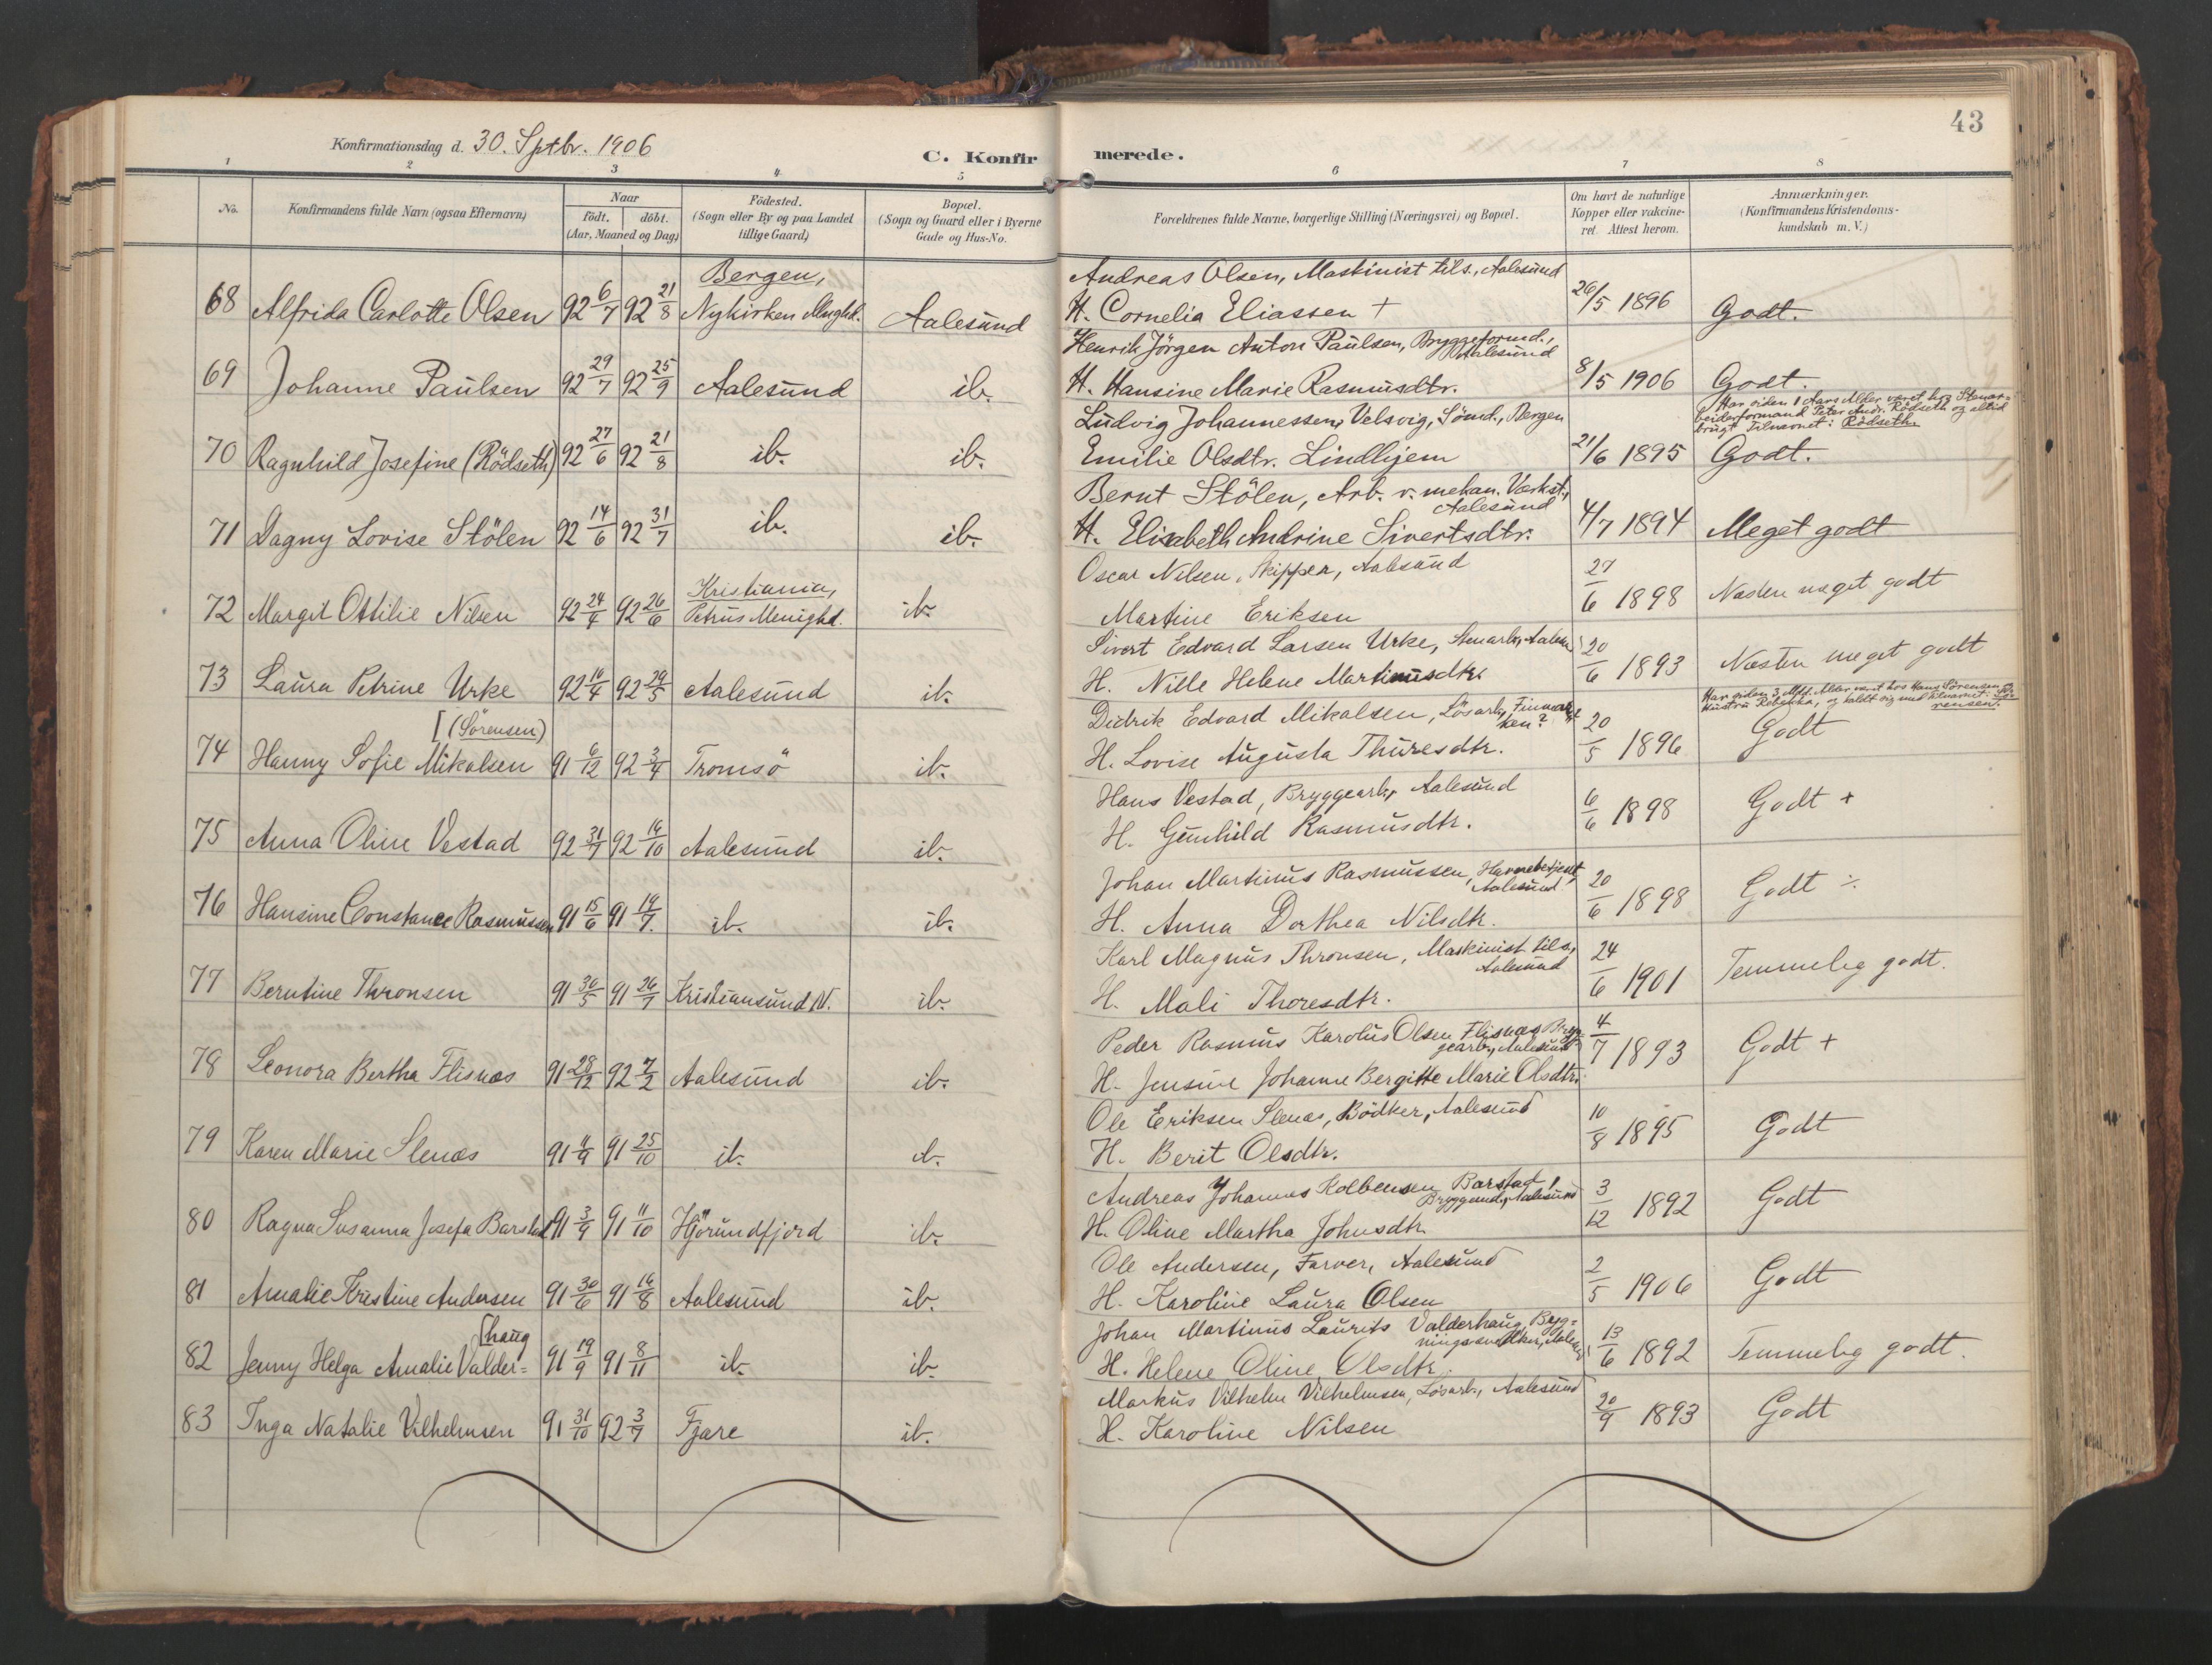 43
Konfirmationsdag d. 30. Sptbr. 1906
C. Konfirmerede.
1 2 3 4 5 6 7 8
No.
Konfirmandens fulde Navn (ogsaa Efternavn)
Naar
födt. döbt.
(Aar, Maaned og Dag)
Födested.
(Sogn eller By og paa Landet
tillige Gaard)
Bopæl.
(Sogn og Gaard eller i Byerne
Gade og Hus-No.
Forældrenes fulde Navne, borgerlige Stilling (Næringsvei) og Bopæl.
Om havt de naturlige
Kopper eller vakcine-
ret. Attest herom.
Anmærkninger.
(Konfirmandens Kristendoms-
kundskab m. V.)
Bergen, Andreas Olsen, Maskinist tils., Aalesund
68 Alfrida Carlotte Olsen 92 6/7 92 21/8 Nykirken Menghd. Aalesund H. Cornelia Eliassen + 26/5 1896 Godt.
Henrik Jörgen Anton Paulsen, Bryggeformd.,
Aalesund
69 Johanne Paulsen 92 29/7 92 25/9 Aalesund ib. H. Hansine Marie Rasmusdtr. 8/5 1906 Godt.
Har siden 1 Aars Alder været hos Stenar-
beiderformand Peter Andr. Rödseth og altid
brugt Tilnavnet: Rödseth.
Ludvig Johannessen, Velsvig, Sömd., Bergen
70 Ragnhild Josefine (Rödseth) 92 27/6 92 21/8 ib. ib. Emilie Olsdtr. Lindhjem 21/6 1895 Godt.
Bernt Stölen, Arb. v. mekan. Værkst.,
Aalesund
71 Dagny Lovise Stölen 92 14/6 92 31/7 ib. ib. H. Elisabeth Andrine Sivertsdtr. 4/7 1894 Meget godt
Kristiania, Oscar Nilsen, Skipper, Aalesund
72 Margit Ottilie Nilsen 92 24/4 92 26/6 Petrus Menighd. ib. Martine Eriksen 27/6 1898 Næsten meget godt
Sivert Edvard Larsen Urke, Stenarb., Aalesd
73 Laura Petrine Urke 92 16/4 92 29/5 Aalesund ib. H. Nille Helene Martinusdtr. 20/6 1893 Næsten meget godt
Har siden 3 Mdr. Alder været hos Hans Sörensen og
Hustru Rebekka, og kaldt sig med Tilnavnet: Sö-
rensen.
[(Sörensen) Didrik Edvard Mikalsen, Lösarb., Finmar-
ken?
74 Hanny Sofie Mikalsen 91 6/12 92 3/4 Tromsö ib. H. Lovise Augusta Thuresdtr. 20/5 1896 Godt
Hans Vestad, Bryggearb., Aalesund
75 Anna Oline Vestad 92 31/7 92 16/10 Aalesund ib. H. Gunhild Rasmusdtr. 6/6 1898 Godt +
Johan Martinus Rasmussen, Havnebetjent,
Aalesund
76 Hansine Constance Rasmussen 91 15/6 91 19/7 ib. ib. H. Anna Dorthea Nilsdtr. 20/6 1898 Godt ÷
Karl Magnus Thronsen, Maskinist tils.,
Aalesund
77 Berntine Thronsen 91 30/5 91 26/7 Kristiansund N. ib. H. Mali Thoresdtr. 24/6 1901 Temmelig godt.
Peder Rasmus Karolus Olsen Flisnæs, Bryg-
gearb., Aalesund
78 Leonora Bertha Flisnæs 91 28/12 92 7/2 Aalesund ib. H. Jensine Johanne Bergitte Marie Olsdtr. 4/7 1893 Godt +
Ole Eriksen Slenæs, Bödker, Aalesund
79 Karen Marie Slenæs 91 4/9 91 25/10 ib. ib. H. Berit Olsdtr. 10/8 1895 Godt
Andreas Johannes Kolbensen Barstad,
Bryggemd., Aalesund
80 Ragna Susanna Josefa Barstad 91 3/9 91 11/10 Hjörundfjord ib. H. Oline Martha Johnsdtr. 3/12 1892 Godt
Ole Andersen, Farver, Aalesund
81 Amalie Kristine Andersen 91 30/6 91 16/8 Aalesund ib. H. Karoline Laura Olsen 2/5 1906 Godt
[haug Johan Martinus Laurits Valderhaug, Byg-
ningssnedker, Aalesd
82 Jenny Helga Amalie Valder= 91 19/9 91 8/11 ib. ib. H. Helene Oline Olsdtr. 13/6 1892 Temmelig godt.
Markus Vilhelm Vilhelmsen, Lösarb., Aalesund
83 Inga Natalie Vilhelmsen 91 31/10 92 3/7 Fjare ib. H. Karoline Nilsen 20/9 1893 Godt